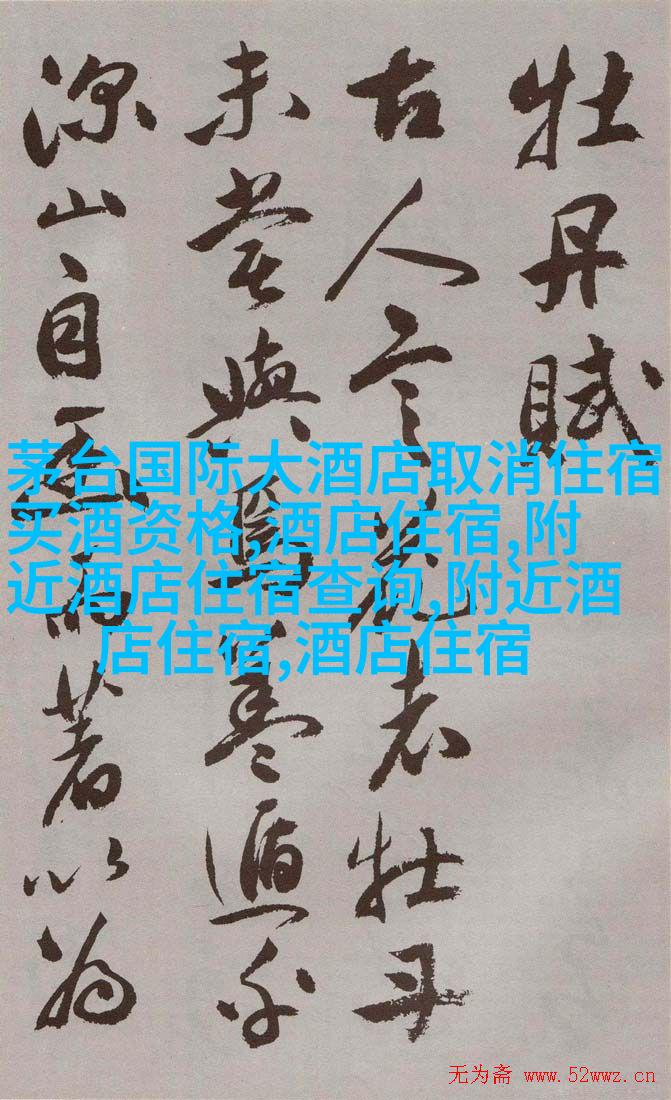 牡丹賦
古人言花者牡丹
未嘗與焉盖遁乎
深山自幽而著以为
茅台国际大酒店取消住宿
买酒资格,酒店住宿,附
近酒店住宿查询,附近酒
店住宿,酒店住宿
无为斋 www.52wwz.cn